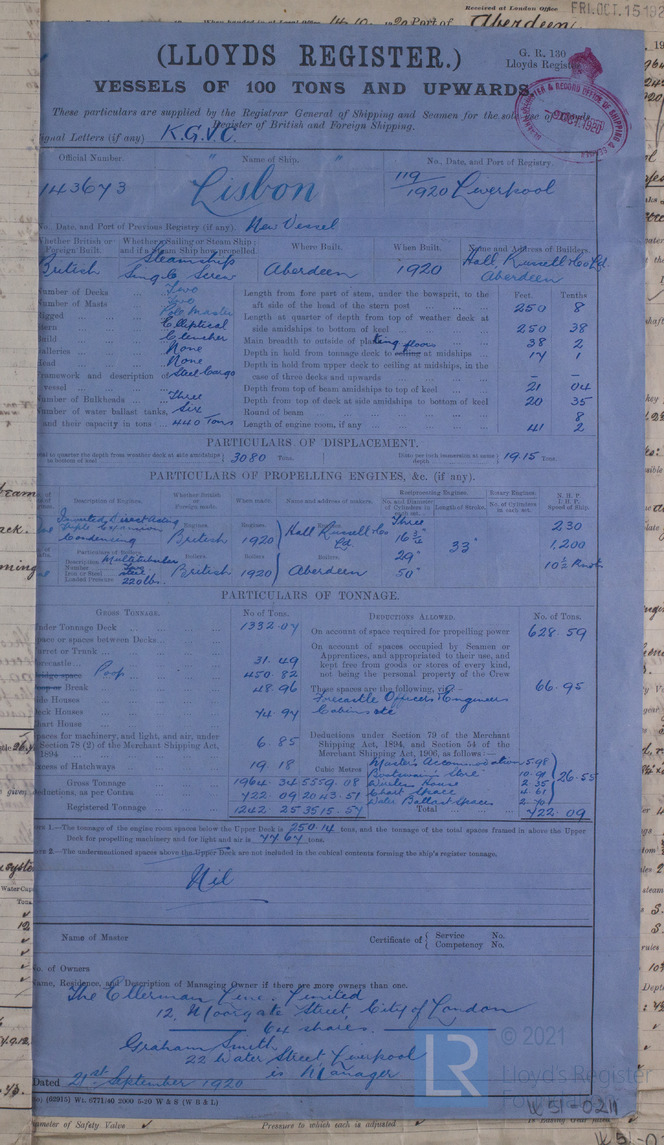 Received at London Office FRI. OCT. 15 192
When handed in at Local Office 14.10. 1920 Port of Aberdeen
(LLOYDS REGISTER.)
G. R. 130
Lloyds Regist
VESSELS OF 100 TONS AND UPWARDS
These particulars are supplied by the Registrar General of Shipping and Seamen for the sole use of Lloyds
Register of British and Foreign Shipping.
ignal Letters (if any) K.G.V.C.
Official Number. Name of Ship. No., Date, and Port of Registry.
143673 "Lisbon" 119/1920 Liverpool
No., Date, and Port of Previous Registry (if any). New Vessel
Whether British or Foreign Built. Whether a Sailing or Steam Ship; and if a Steam Ship how propelled. Where Built. When Built. Name and Address of Builders.
British Steamship Single Screw Aberdeen 1920 Hall Russell & Co Ld. Aberdeen
Number of Decks Two
Number of Masts Two
Rigged Pole Masts
tern Elliptical
Build Clencher
Galleries None
Head None
Framework and description of vessel Steel Cargo
Number of Bulkheads Three
Number of water ballast tanks, Six
and their capacity in tons 440 Tons
Feet. Tenths
Length from fore part of stem, under the bowsprit, to the aft side of the head of the stern post 250 8
Length at quarter of depth from top of weather deck at side amidships to bottom of keel 250 38
Main breadth to outside of plating 38 2
Depth in hold from tonnage deck to ceiling floors at midships 17 1
Depth in hold from upper deck to ceiling at midships, in the case of three decks and upwards – –
Depth from top of beam amidships to top of keel 21 04
Depth from top of deck at side amidships to bottom of keel 20 35
Round of beam 8
Length of engine room, if any 41 2
PARTICULARS OF DISPLACEMENT.
tal to quarter the depth from weather deck at side amidships to bottom of keel 3080 Tons. Ditto per inch immersion at same depth 19.15 Tons.
PARTICULARS OF PROPELLING ENGINES, &c. (if any).
Description of Engines. Whether British or Foreign made. When made. Name and address of makers. Reciprocating Engines. No. and Diameter of Cylinders in each set. Length of Stroke. Rotary Engines. No. of Cylinders in each set. N. H. P. I. H. P. Speed of Ship.
Inverted Direct Acting Triple Expansion Condensing
Engines. British Engines. 1920 Hall Russell & Co Ld. Three
29" 50" 33" 230 1,200 10½ Knots
Particulars of Boilers. Description Multitubular
Number Two
Iron or Steel Steel
Loaded Pressure 220 lbs.
Boilers British Boilers 1920 Boilers. Aberdeen
PARTICULARS OF TONNAGE.
GROSS TONNAGE. No of Tons. DEDUCTIONS ALLOWED. No. of Tons.
Under Tonnage Deck 1332.07
pace or spaces between Decks
urret or Trunk
orecastle 31.49
Bridge space Poop 450.82
Poop or Break 48.96
ide Houses
Deck Houses 74.97
hart House
paces for machinery, and light, and air, under Section 78 (2) of the Merchant Shipping Act, 1894 6.85
xcess of Hatchways 19.18
Cubic Metres
Gross Tonnage 1964.34 5559.08
eductions, as per Contra 722.09 2043.51
Registered Tonnage 1242.25 3515.57
On account of space required for propelling power 628.59
On account of spaces occupied by Seamen or Apprentices, and appropriated to their use, and kept free from goods or stores of every kind, not being the personal property of the Crew
These spaces are the following, viz:— 66.95
Forecastle Officers Engineers
Cabins etc
Deductions under Section 79 of the Merchant Shipping Act, 1894, and Section 54 of the Merchant Shipping Act, 1906, as follows:—
Master's Accommodation 5.98
Boatswain's Store 10.91
2.35
Chart Space 4.61
Water Ballast Spaces 2.70
26.55
Total 722.09
1.—The tonnage of the engine room spaces below the Upper Deck is 250.14 tons, and the tonnage of the total spaces framed in above the Upper Deck for propelling machinery and for light and air is 77.67 tons.
2.—The undermentioned spaces above the Upper Deck are not included in the cubical contents forming the ship's register tonnage.
Nil
Name of Master
Certificate of { Service No. Competency No.
o. of Owners
ame, Residence, and Description of Managing Owner if there are more owners than one.
The Ellerman Lines Limited
12, Moorgate Street, City of London
64 shares.
Graham Smith
22 Water Street Liverpool
is Manager
Dated 21st September 1920
(62915) Wt. 6771/40 2000 5-20 W & S (W B & L)
LR
© 2021
Lloyd's Register
Foundation
W51-0211
ameter of Safety Valve
Pressure to which each is adjusted